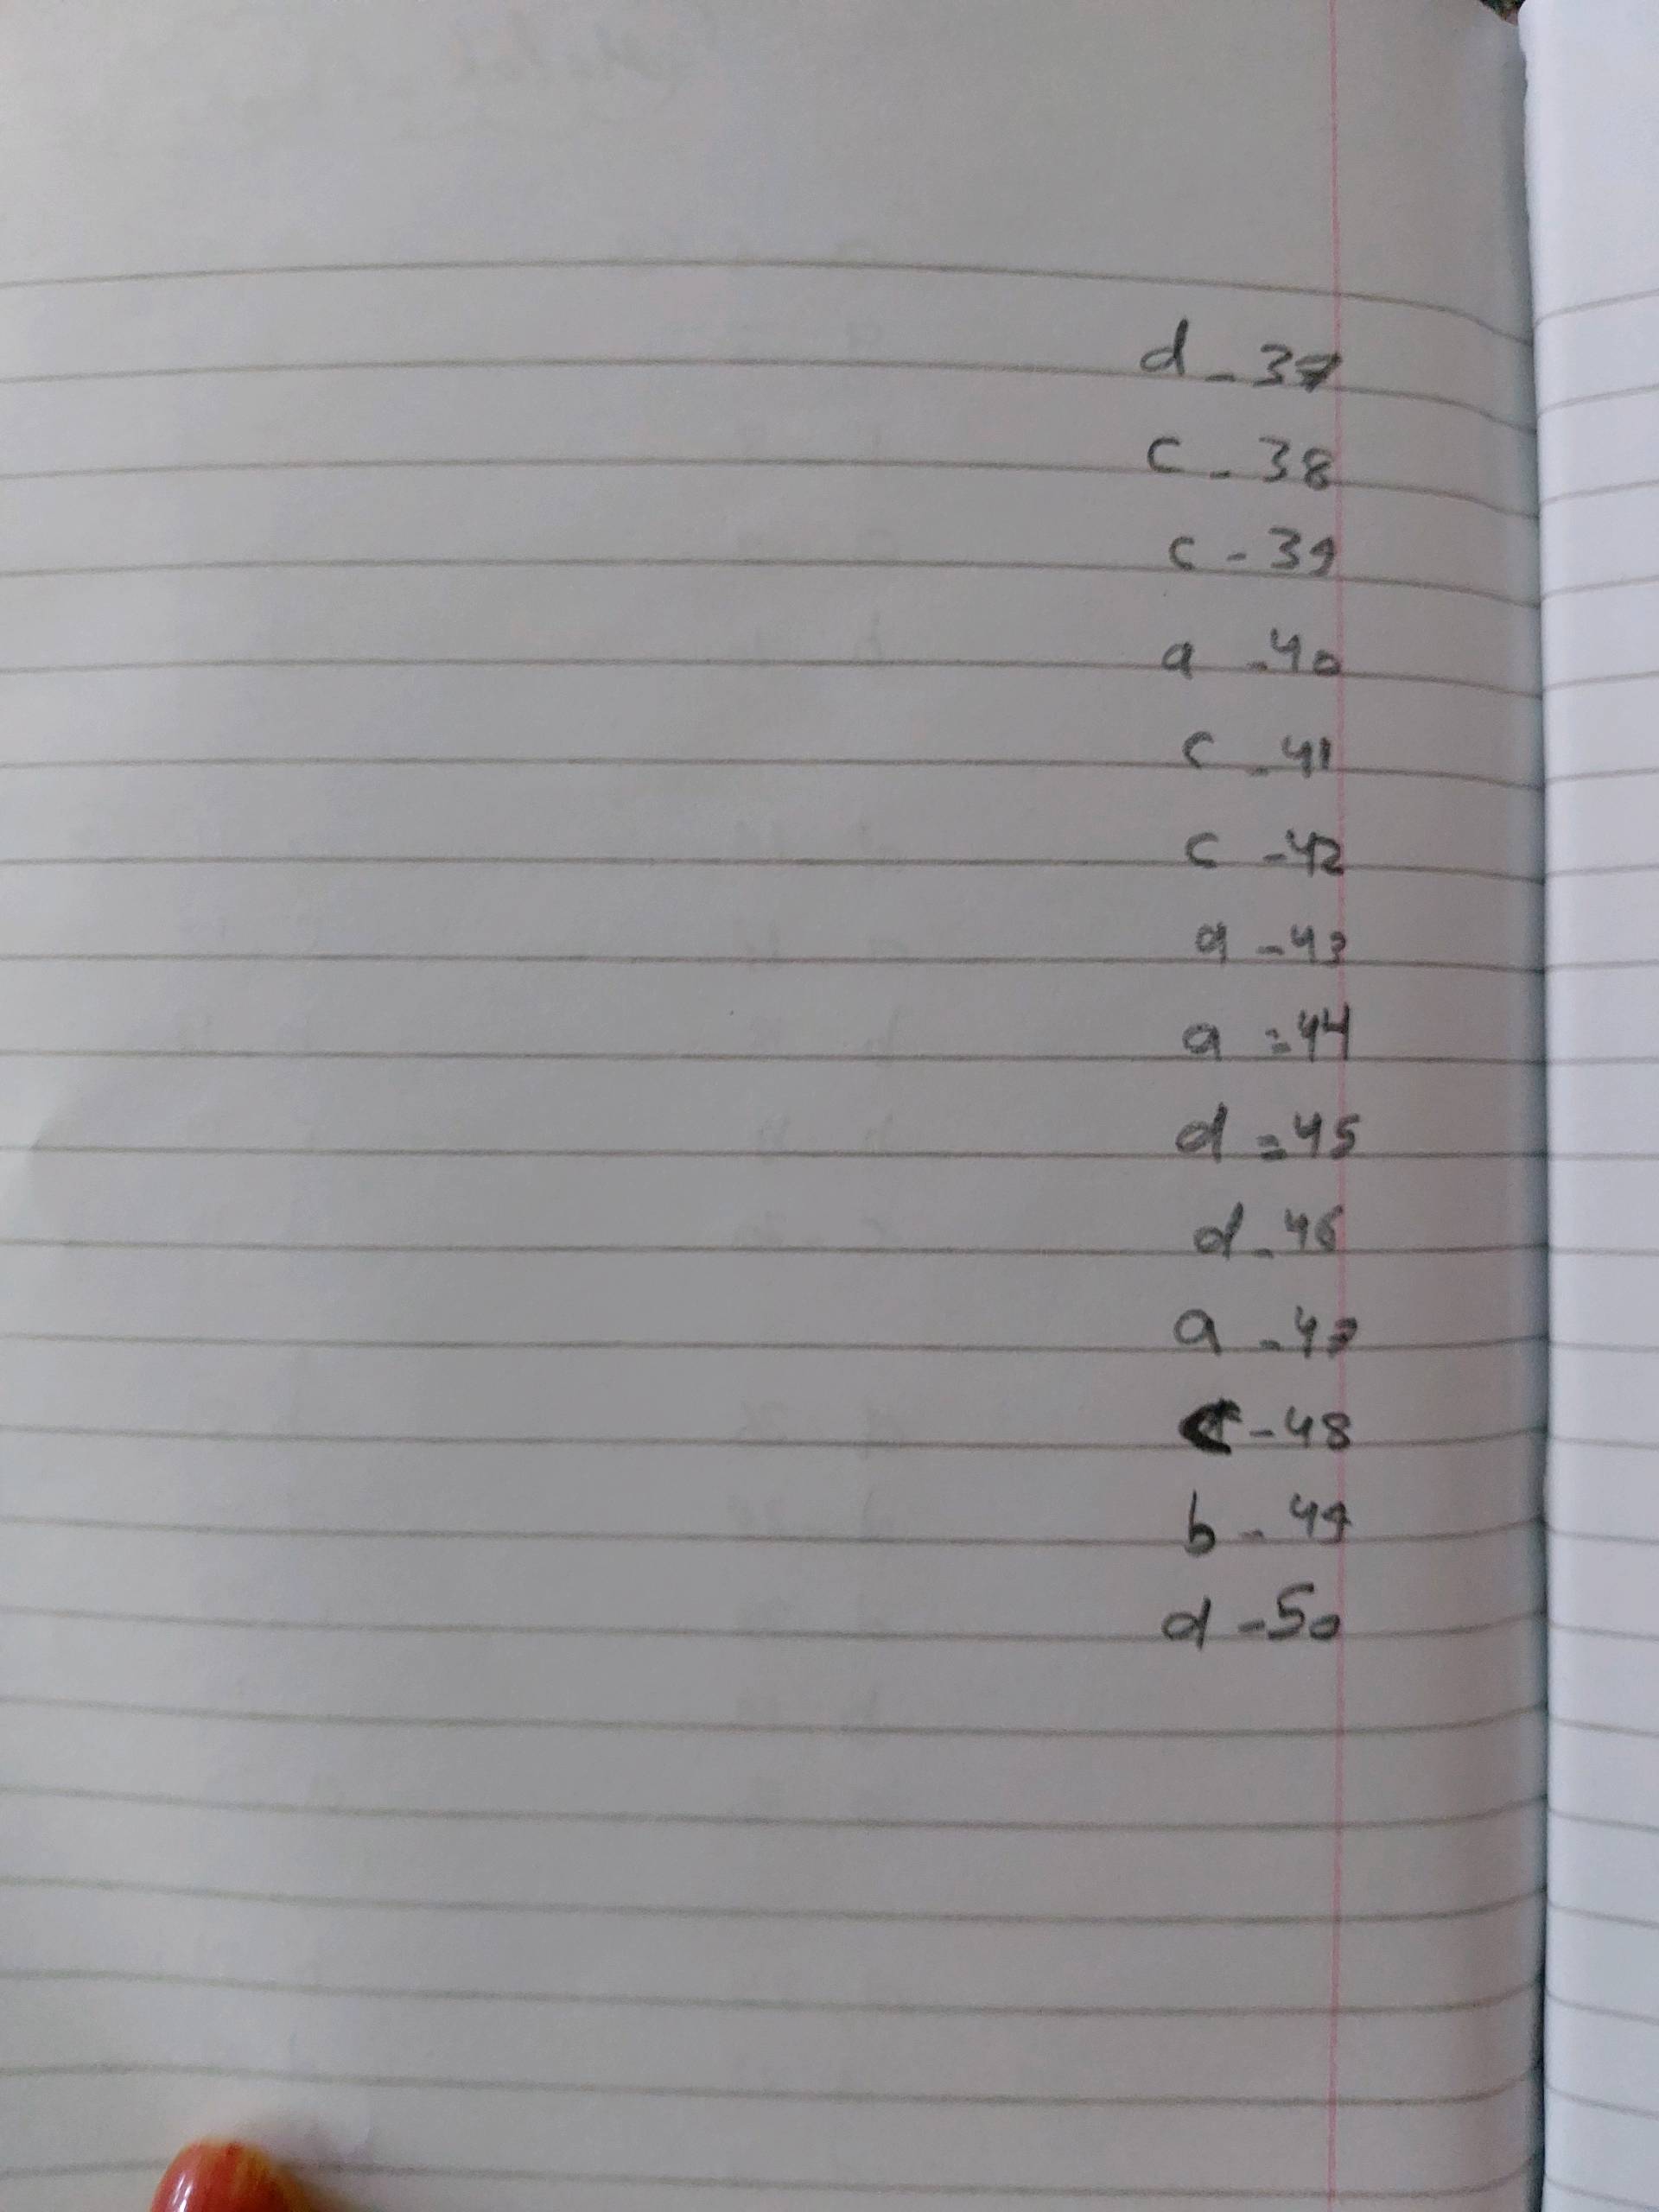 d - 37
c - 38
c - 39
a - 40
c - 41
c - 42
a - 43
a = 44
d = 45
d - 46
a - 47
c - 48
b - 49
d - 50